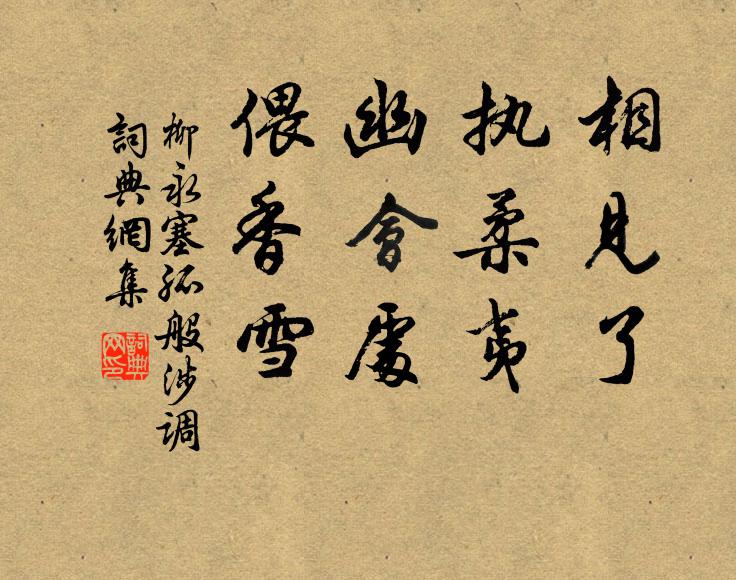 相見了
执柔夷
幽會處
偎香雪
柳永塞孤般涉调
詞典網集
詞典网印